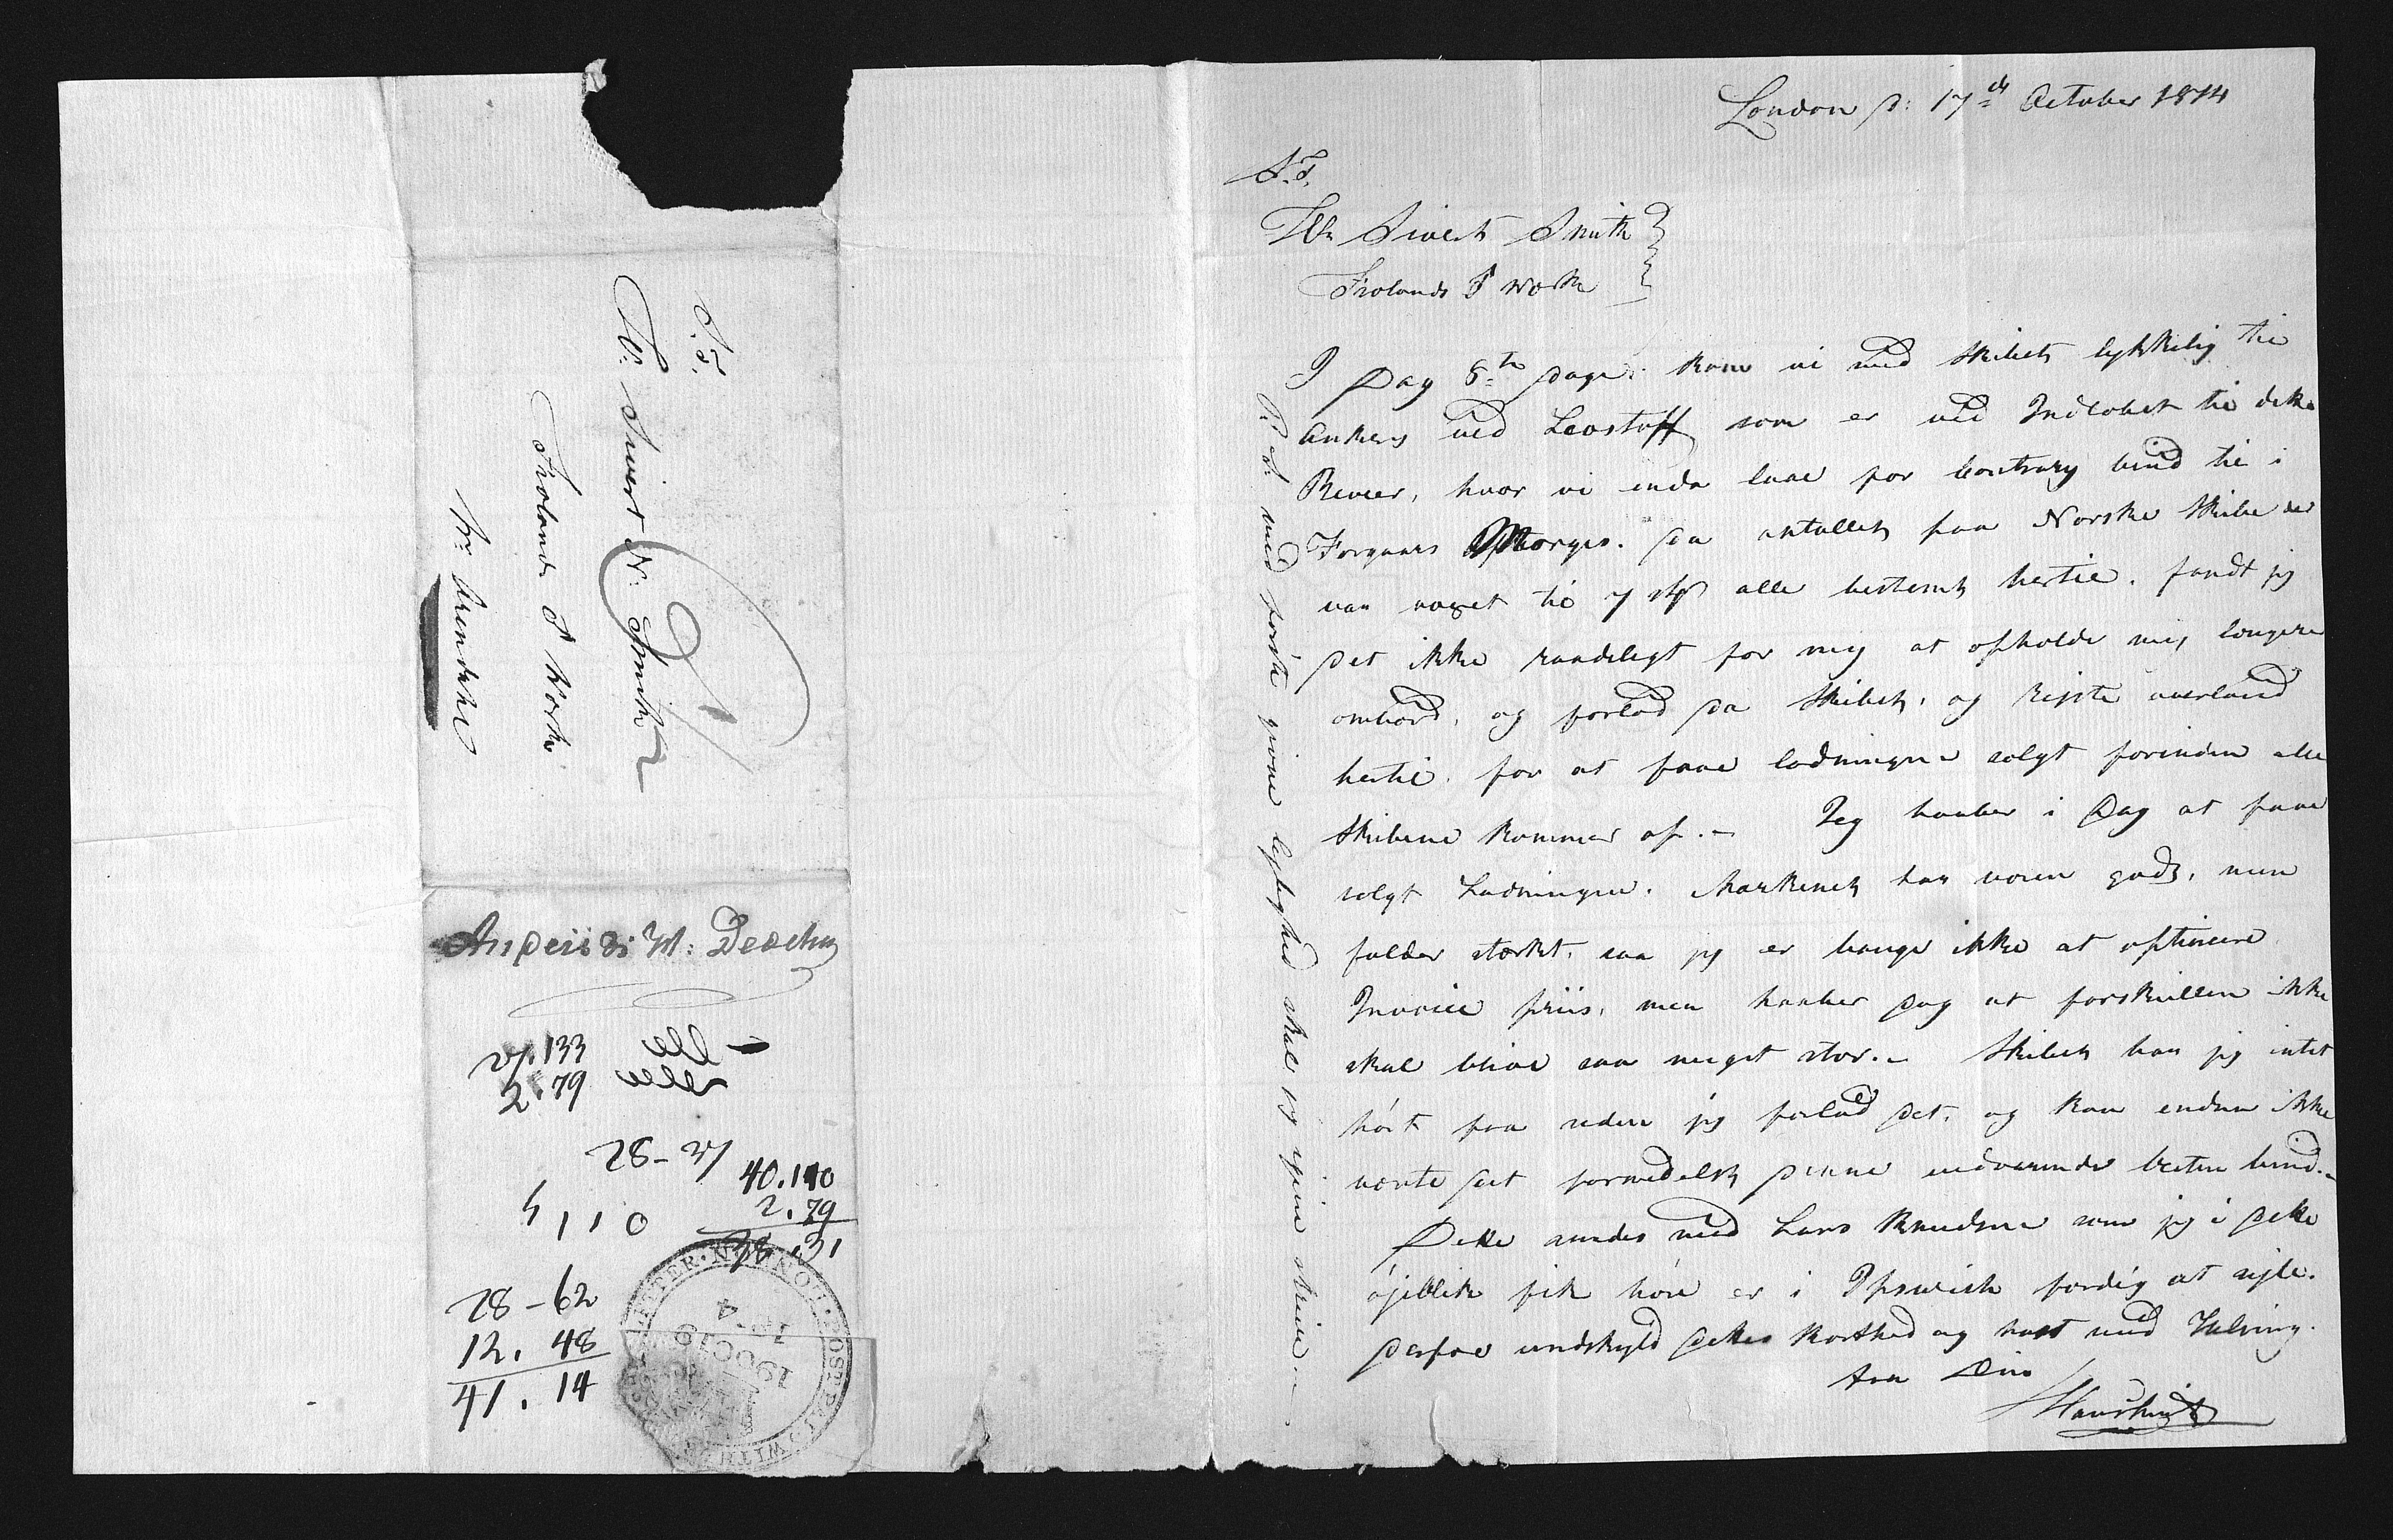 London d: 17de October 1814
S.T.
Hr Sivert Smith
Frolands J Værk
I Dag 8te Dage. kom vi med Skibet lykkelig til
Ankers ved Leostoff som er ved Indlobet til dette
Reveer, hvor vi enda laae for Contrary Vind til i
Forgaars Morges. da antallet paa Norske Skibe der
var voxet til 7 stk alle bestemt hertil. fandt jeg
det ikke raadeligt for mig at opholde mig længere
ombord, og forlod da Skibet, og rejste overland
hertil. for at faae ladningen solgt forinden alle
Skibene kommer op. – Jeg haaber i Dag at faae
solgt Ladningen. Markenet har været godt, men
falder stærkt, saa jeg er bange ikke at optinere
Invoice priis, men haaber dog at forskiellen ikke
skal blive saa meget stor. – Skibet har jeg intet
hørt fra siden jeg forlod det, og kan endnu ikke
vente det formedelst denne vedvarende Vesten Vind. –
Dette sendes med Lars Knudsen som jeg i dette
øjeblik fik høre er i Ipswich færdig at sejle.
derfor undskyld dettes Korthed og hast med Hilsing.
fra Din
HansSmith
P.S. med første giene lejlighed skal jeg igien skrive. –
S.T.
Hr: Sivert N. Smith
Frolands J Værk
pr. Arendahl
133
2.79
28–
40.110
2.79
38.31
4110
28–62
12. 48
41. 14
19 OC 19
1814